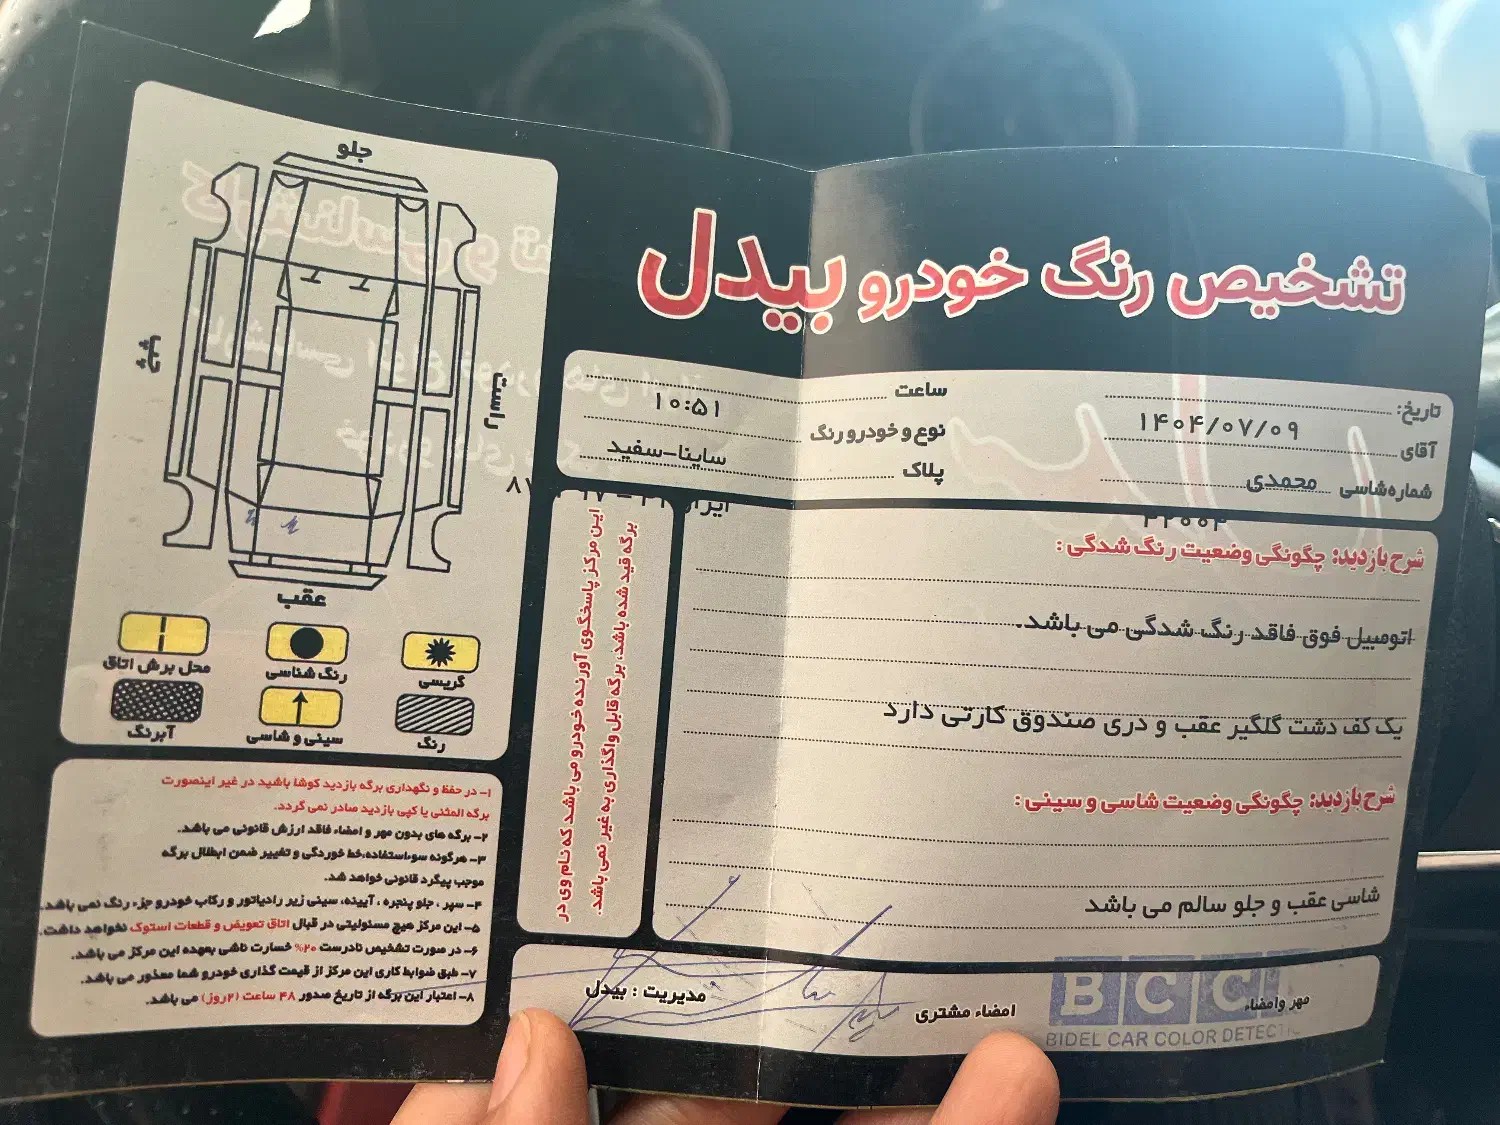 تشخیص رنگ خودرو بیدل
تاریخ:
۱۴۰۴/۰۷/۰۹
ساعت
۱۰:۵۱
آقای
محمدی
نوع و خودرو رنگ
ساینا-سفید
شماره شاسی
پلاک
شرح بازدید: چگونگی وضعیت رنگ شدگی:
اتومبیل فوق فاقد رنگ شدگی می باشد.
یک کف دشت گلگیر عقب و دری صندوق کارتی دارد
شرح بازدید: چگونگی وضعیت شاسی و سینی:
شاسی عقب و جلو سالم می باشد
مهر وامضاء
امضاء مشتری
مدیریت : بیدل
BCC
BIDEL CAR COLOR
این مرکز پاسخگوی آورنده خودرو می باشد که نام وی در
برگه قید شده باشد، برگه قابل واگذاری به غیر نمی باشد.
جلو
چپ
راست
عقب
گریسی
رنگ شناسی
محل برش اتاق
رنگ
سینی و شاسی
آبرنگ
۱- در حفظ و نگهداری برگه بازدید کوشا باشید در غیر اینصورت
برگه المثنی یا کپی بازدید صادر نمی گردد.
۲- برگه های بدون مهر و امضاء فاقد ارزش قانونی می باشد.
۳- هرگونه سوءاستفاده،خط خوردگی و تغییر ضمن ابطال برگه
موجب پیگرد قانونی خواهد شد.
۴- سپر ، جلو پنجره ، آیینه، سینی زیر رادیاتور و رکاب خودرو جزء رنگ نمی باشد.
۵- این مرکز هیچ مسئولیتی در قبال اتاق تعویض و قطعات استوک نخواهد داشت.
۶- در صورت تشخیص نادرست ۲۰% خسارت ناشی بعهده این مرکز می باشد.
۷- طبق ضوابط کاری این مرکز از قیمت گذاری خودرو شما معذور می باشد.
۸- اعتبار این برگه از تاریخ صدور ۴۸ ساعت (۲روز) می باشد.